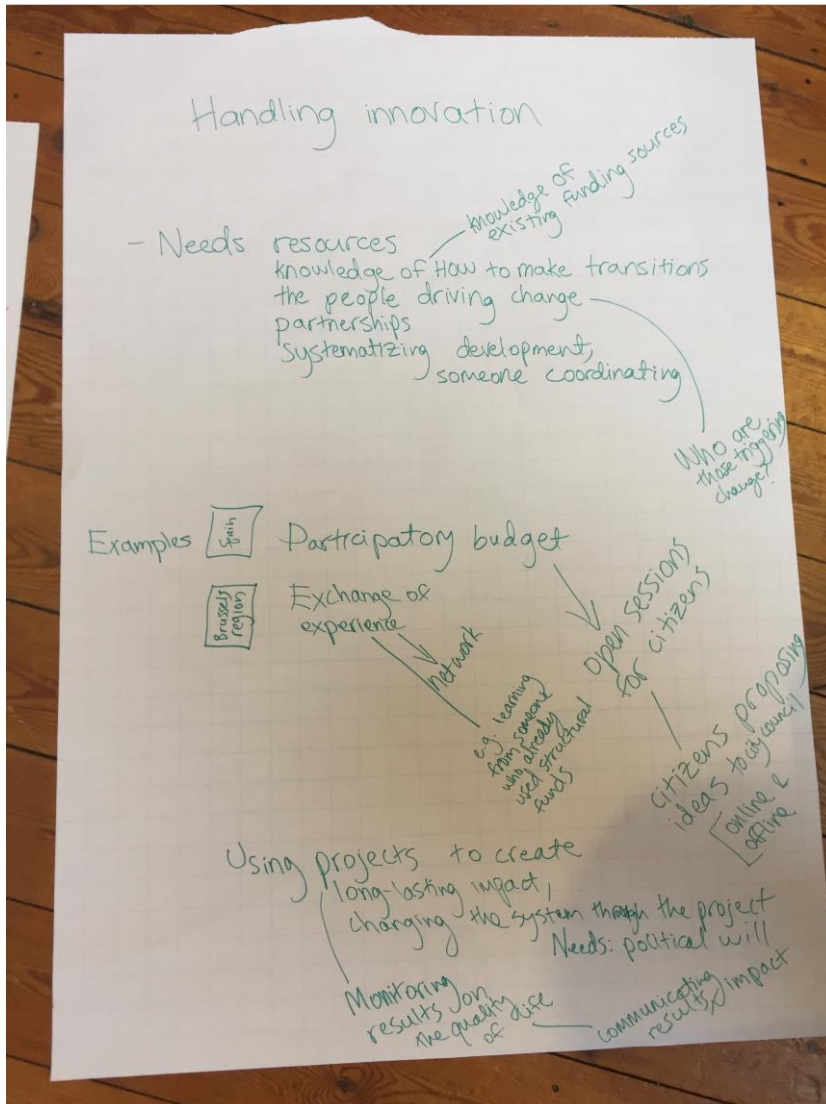 Handling innovation
knowledge of
existing funding sources
- Needs resources
knowledge of How to make transitions
the people driving change
partnerships
systematizing development,
someone coordinating
Who are
those triggering
change?
Examples Spain Participatory budget
Brussels
region
Exchange of
experience
network
e.g. learning
from someone
who already
used structural
funds
open sessions
for citizens
citizens proposing
ideas to city council
online &
offline
Using projects to create
long-lasting impact,
changing the system through the project
Needs: political will
Monitoring
results on
the quality
of life
communicating
results, impact